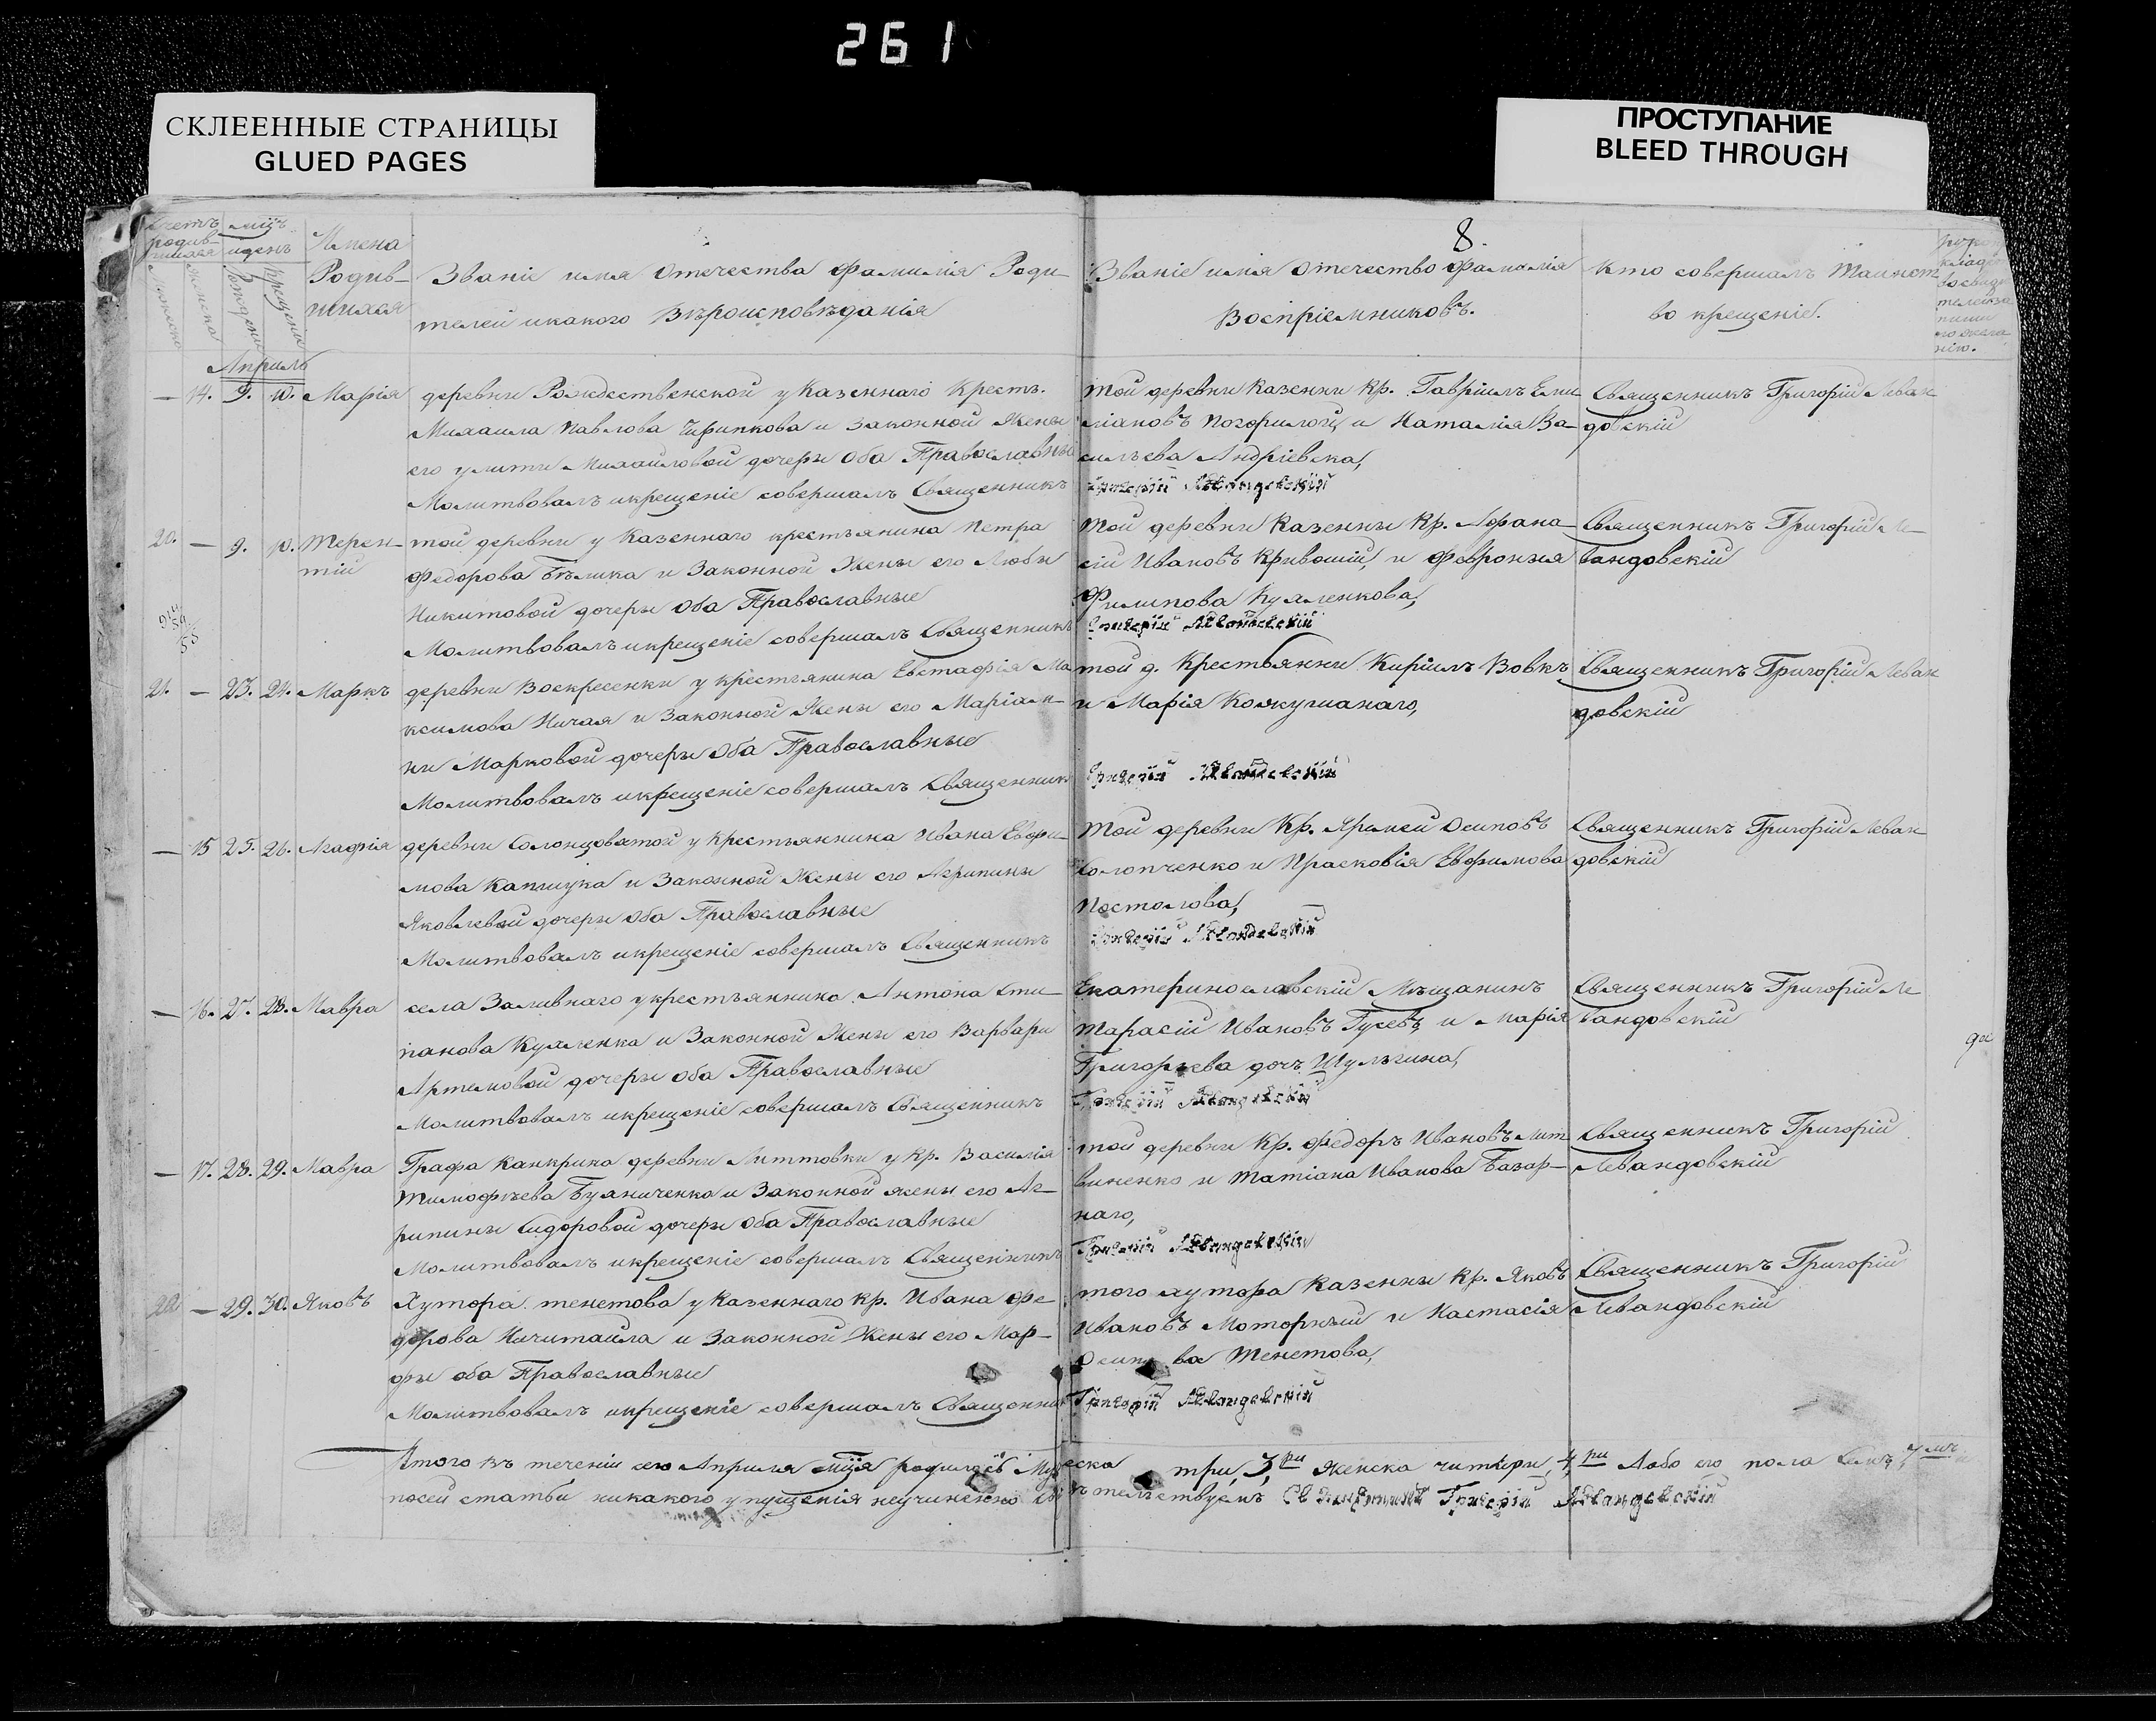 261
СКЛЕЕННЫЕ СТРАНИЦЫ
GLUED PAGES
ПРОСТУПАНИЕ
BLEED THROUGH
8.
Счетъ родив-шихся
Мужеска
Женска
мцъ и день
Рожденія
Крещенія
Имена
Родив-
шихся
Званіе имя Отечества Фамилія Роди-
телей и какого Вѣроисповѣданія
Званіе имя Отечество Фамилія
Воспріемниковъ.
Кто совершалъ Таинст
во крещеніе.
Апрель
— 14. 9. 10. Марія
деревни Рождественской у Казеннаго Крестъ.
Михаила Павлова Чирипкова и Законной Жены
его Улиты Михайловой дочеры Оба Православные
Молитвовалъ и крещеніе совершалъ Священникъ
Той деревни Казенны Кр. Гавріилъ Еми
ліановъ Погорилой, и Наталія Ва-
сильева Андріевска,
Григорій Левандовскій
Священникъ Григорій Леван
довскій
20. — 9. 10. Терен-
тій
той деревни у Казеннаго крестьянина Петра
Федорова Бѣлика и Законной Жены его Любы
Никитовой дочеры Оба Православные
Молитвовалъ и крещеніе совершалъ Священникъ
Той деревни Казенны Кр. Афана-
сій Ивановъ Кривошій, и Февронія
Филипова Куяленкова,
Григорій Левандовскій
Священникъ Григорій Ле-
вандовскій
21. — 23. 24. Маркъ
деревни Воскресенки у крестьянина Евстафія Ма
ксимова Ничая и Законной Жены его Маріан-
ны Марковой дочеры Оба Православные
Молитвовалъ и крещеніе совершалъ Священник
той д. Крестьянны Кирилъ Вовкъ
и Марія Кожушанаго,
Григорій Левандовскій
Священникъ Григорій Леван
довскій
— 15 25. 26. Агафія
деревни Солонцоватой у Крестьяннина Ивана Евфи-
мова Капшука и Законной Жены его Агрипины
Яковлевой дочеры Оба Православные
Молитвовалъ и крещеніе совершалъ Священникъ
Той деревни Кр. Яремей Осиповъ
Солопченко и Прасковія Евфимова
Постолова,
Григорій Левандовскій
Священникъ Григорій Леван
довскій
— 16. 27. 28. Мавра
села Заливнаго у крестьяннина Антона Сти-
панова Куяленка и Законной Жены его Варвары
Артемовой дочеры Оба Православные
Молитвовалъ и крещеніе совершалъ Священникъ
Екатеринославскій Мѣщанинъ
Тарасій Ивановъ Гусевъ и Марія
Григорьева дочъ Шульгина,
Григорій Левандовскій
Священникъ Григорій Ле
вандовскій
— 17. 28. 29. Мавра
Графа Канкрина деревни Литтовки у кр. Василія
Тимофѣева Буяниченка и Законной жены его Аг-
рипины Сидоровой дочеры Оба Православные
Молитвовалъ и крещеніе совершалъ Священникъ
той деревни Кр. Федоръ Ивановъ Лит
виненко и Татіана Иванова Базар-
наго,
Григорій Левандовскій
Священникъ Григорій
Левандовскій
22 — 29. 30. Яковъ
Хутора тенетова у Казеннаго Кр. Ивана Фе
дорова Ничитайла и Законной Жены его Мар-
фы Оба Православные
Молитвовалъ и крещеніе совершалъ Священник
того хутора Казенны Кр. Яковъ
Ивановъ Моторный и Настасія
Осипова Тенетова,
Григорій Левандовскій
Священникъ Григорій
Левандовскій
Итого въ теченіи сего Апреля мця родилось Мужеска три, 3, ри Женска читыри, 4, ри Абоего пола Семъ, 7 мъ
посей статьи никакого упущенія неучиненно свидѣтельствуемъ Священникъ Григорій Левандовскій